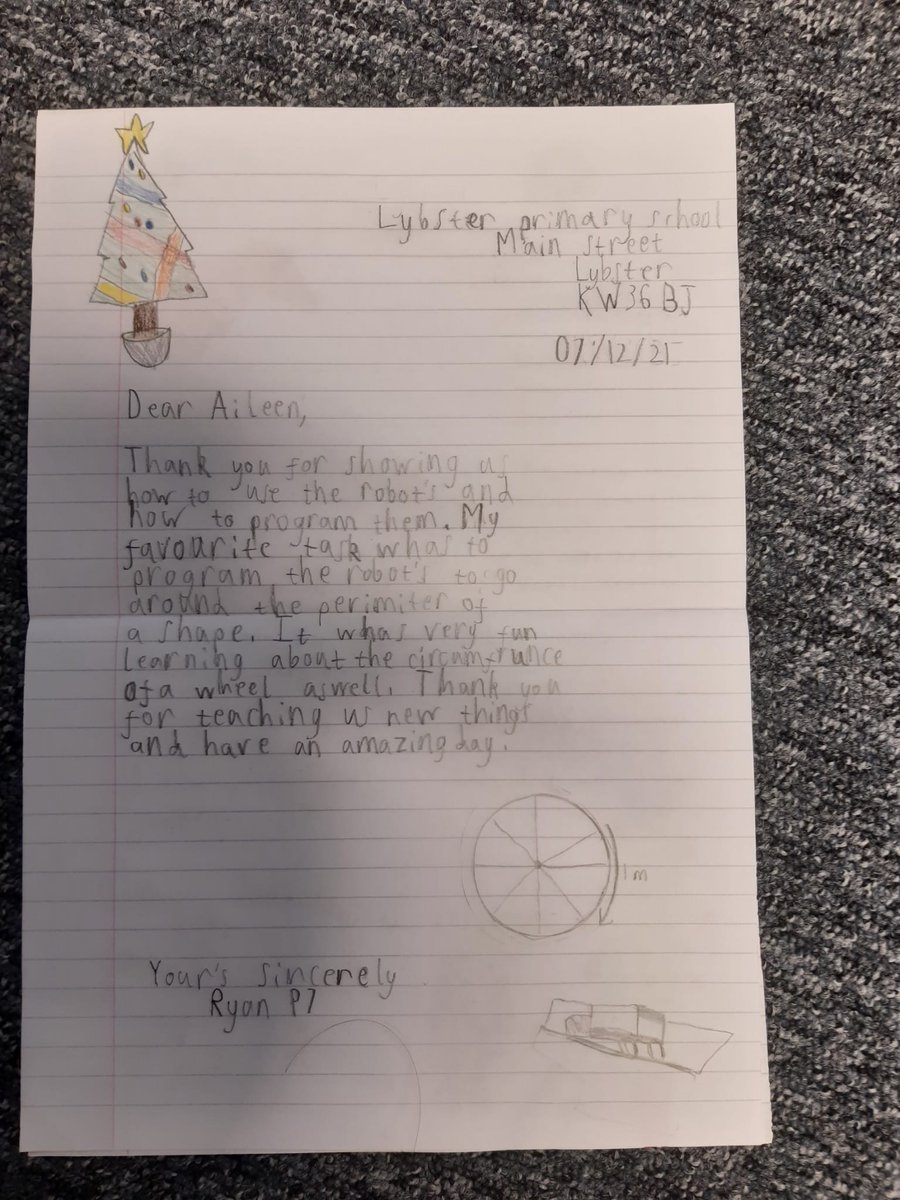 Lybster primary school
Main street
Lybster
KW36BJ
07/12/21
Dear Aileen,
Thank you for showing us
how to use the robot's and
how to program them. My
favourite task whas to
program the robot's to go
around the perimiter of
a shape. It whas very fun
learning about the circumfrunce
of a wheel aswell. Thank you
for teaching us new things
and have an amazing day.
1m
Your's sincerely
Ryan P7